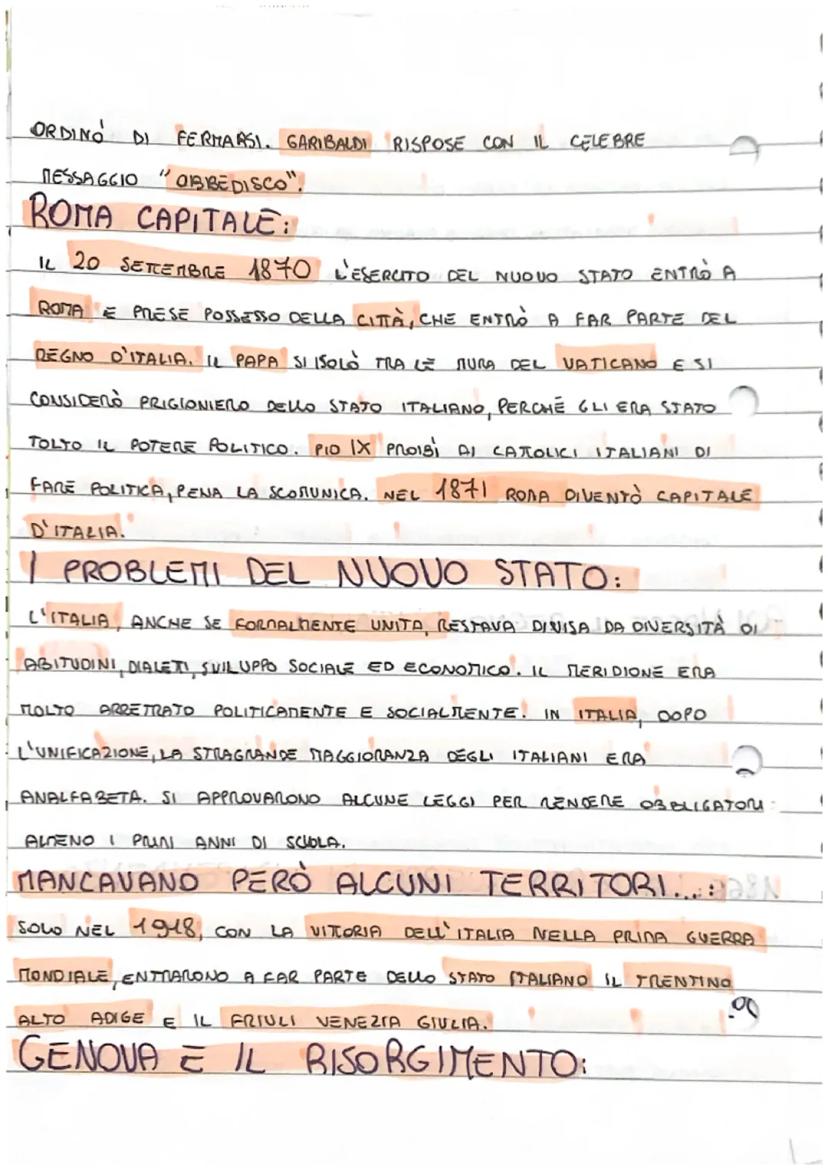 ORDINÒ DI FERMARSI. GARIBALDI RISPOSE CON IL CELEBRE
MESSAGGIO "OBBEDISCO".
ROMA CAPITALE:
IL 20 SETTEMBRE 1870 L'ESERCITO DEL NUOVO STATO ENTRÒ A
ROMA E PRESE POSSESSO DELLA CITTÀ, CHE ENTRÒ A FAR PARTE DEL
REGNO D'ITALIA. IL PAPA SI ISOLÒ TRA LE MURA DEL VATICANO E SI
CONSIDERÒ PRIGIONIERO DELLO STATO ITALIANO, PERCHÉ GLI ERA STATO
TOLTO IL POTERE POLITICO. PIO IX PROIBÌ AI CATTOLICI ITALIANI DI
FARE POLITICA, PENA LA SCOMUNICA. NEL 1871 ROMA DIVENTÒ CAPITALE
D'ITALIA.
I PROBLEMI DEL NUOVO STATO:
L'ITALIA, ANCHE SE FORMALMENTE UNITA, RESTAVA DIVISA DA DIVERSITÀ DI
ABITUDINI, DIALETI, SVILUPPO SOCIALE ED ECONOMICO. IL MERIDIONE ERA
MOLTO ARRETRATO POLITICAMENTE E SOCIALMENTE. IN ITALIA, DOPO
L'UNIFICAZIONE, LA STRAGRANDE MAGGIORANZA DEGLI ITALIANI ERA
ANALFABETA. SI APPROVARONO ALCUNE LEGGI PER RENDERE OBBLIGATORI
ALMENO I PRIMI ANNI DI SCUOLA.
MANCAVANO PERÒ ALCUNI TERRITORI...:
SOLO NEL 1918, CON LA VITTORIA DELL'ITALIA NELLA PRIMA GUERRA
MONDIALE, ENTRARONO A FAR PARTE DELLO STATO ITALIANO IL TRENTINO
ALTO ADIGE E IL FRIULI VENEZIA GIULIA.
GENOVA E IL RISORGIMENTO: